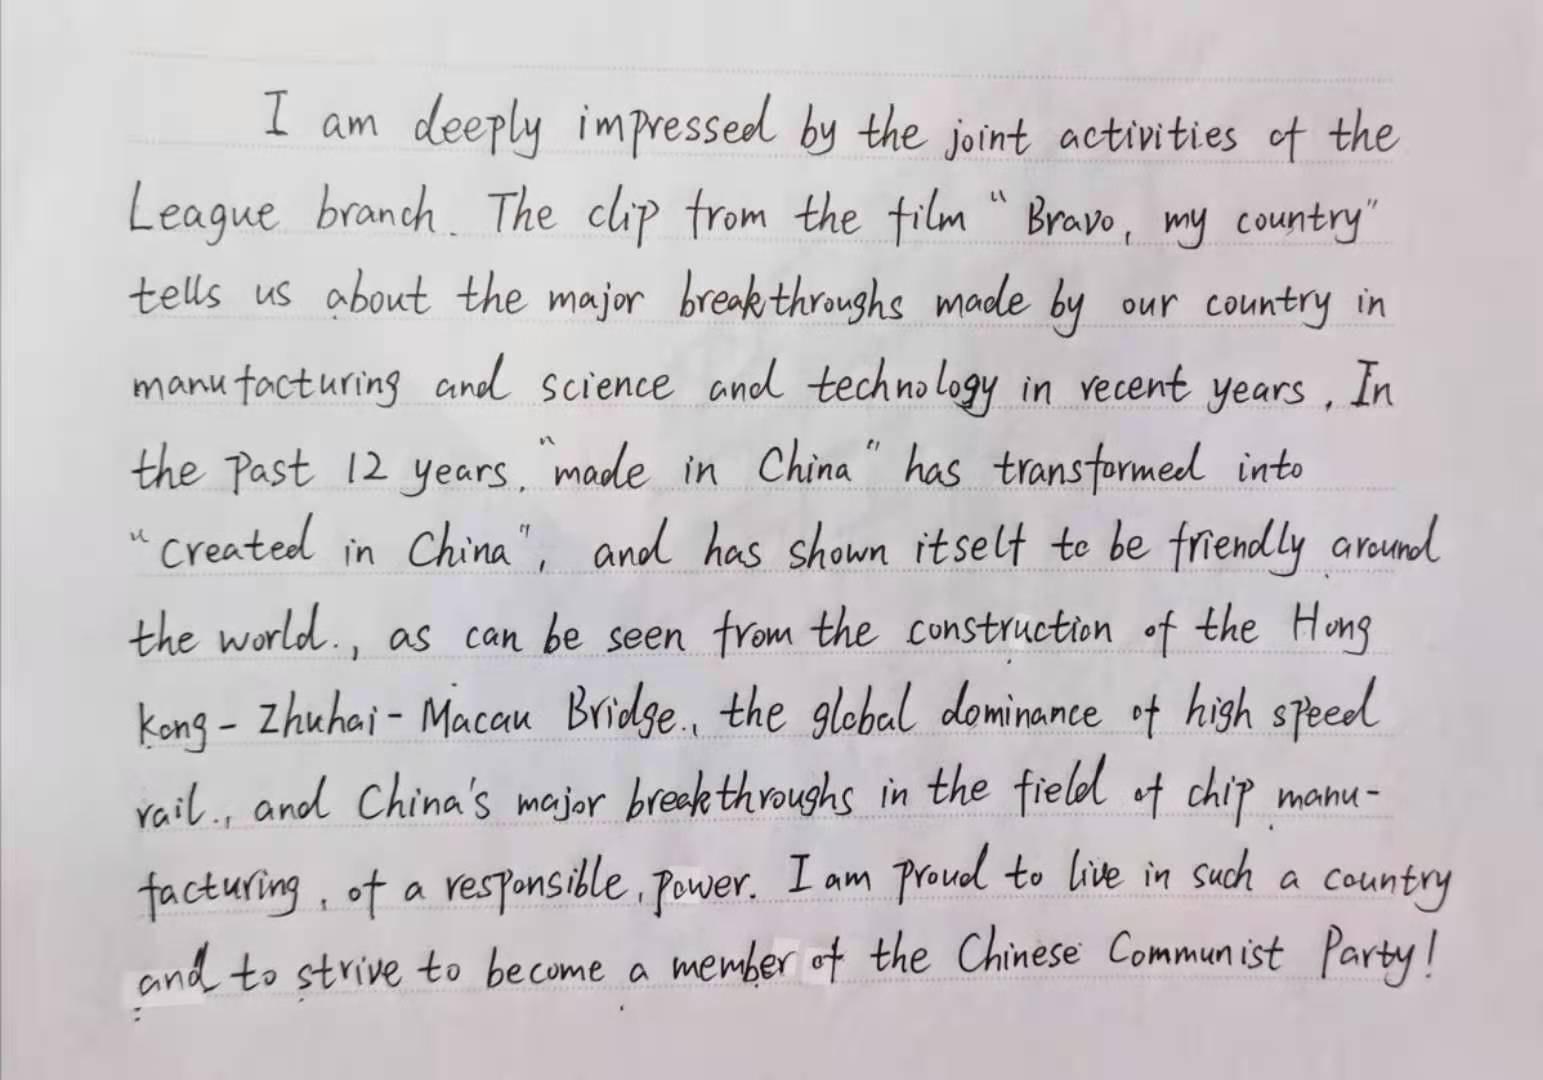 I am deeply impressed by the joint activities of the
League branch. The clip from the film "Bravo, my country"
tells us about the major breakthroughs made by our country in
manufacturing and science and technology in recent years. In
the past 12 years, "made in China" has transformed into
"created in China", and has shown itself to be friendly around
the world., as can be seen from the construction of the Hong
Kong-Zhuhai-Macau Bridge., the global dominance of high speed
rail., and China's major breakthroughs in the field of chip manu-
facturing, of a responsible, power. I am proud to live in such a country
and to strive to become a member of the Chinese Communist Party!